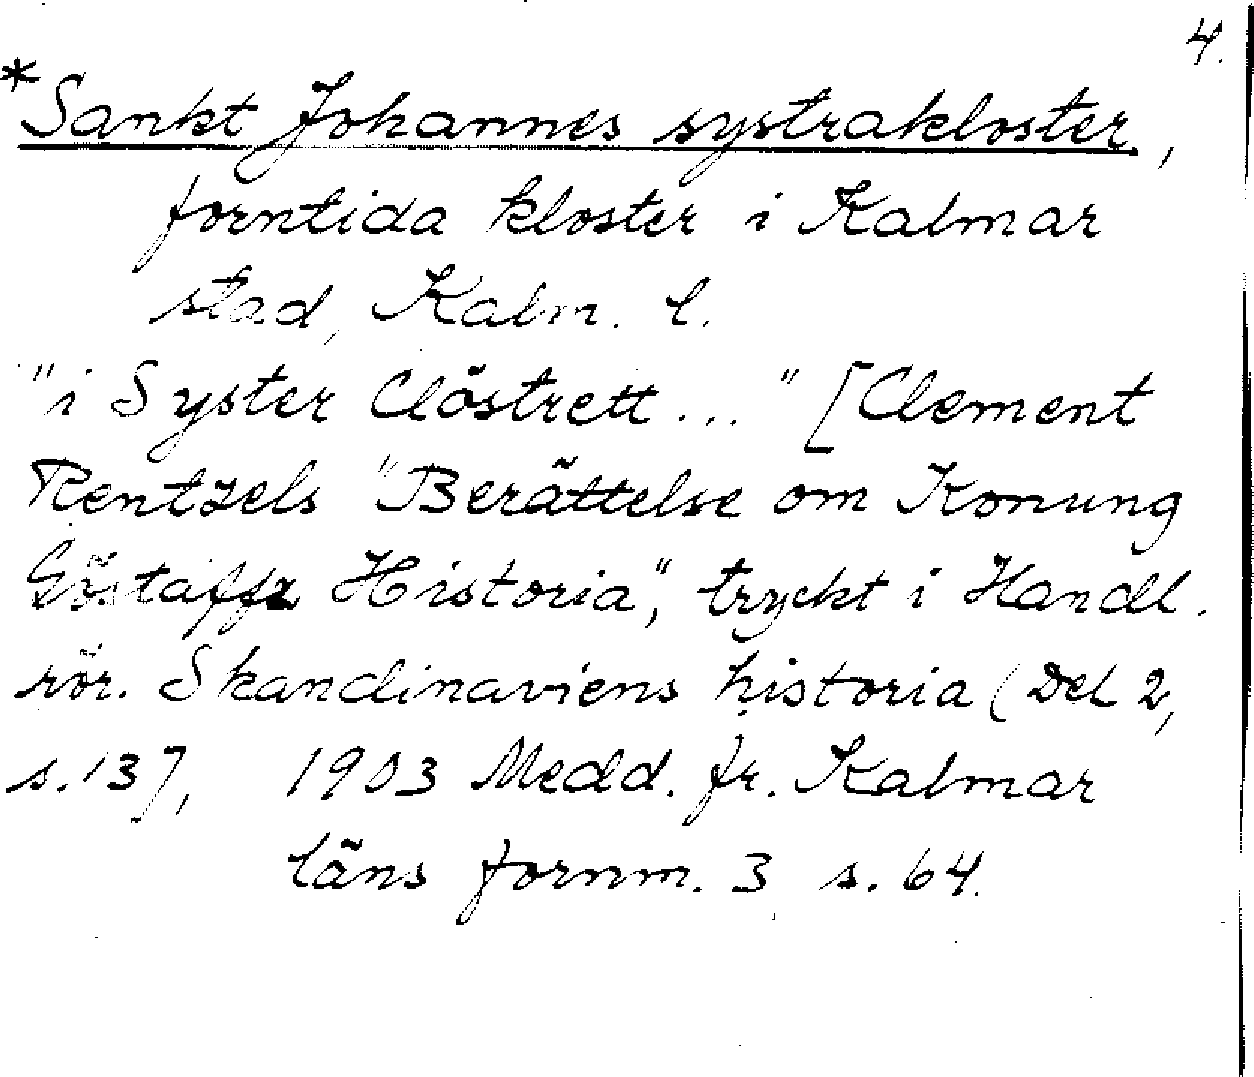 4.
*Sankt Johannes systrakloster,
forntida kloster i Kalmar
stad, Kalm. l.
"i Syster Clöstrett..." [Clement
Rentzels "Berättelse om Konung
Göstaffz Historia", tryckt i Handl.
rör. Skandinaviens historia (Del 2,
s. 13], 1903 Medd. fr. Kalmar
läns fornm. 3 s. 64.